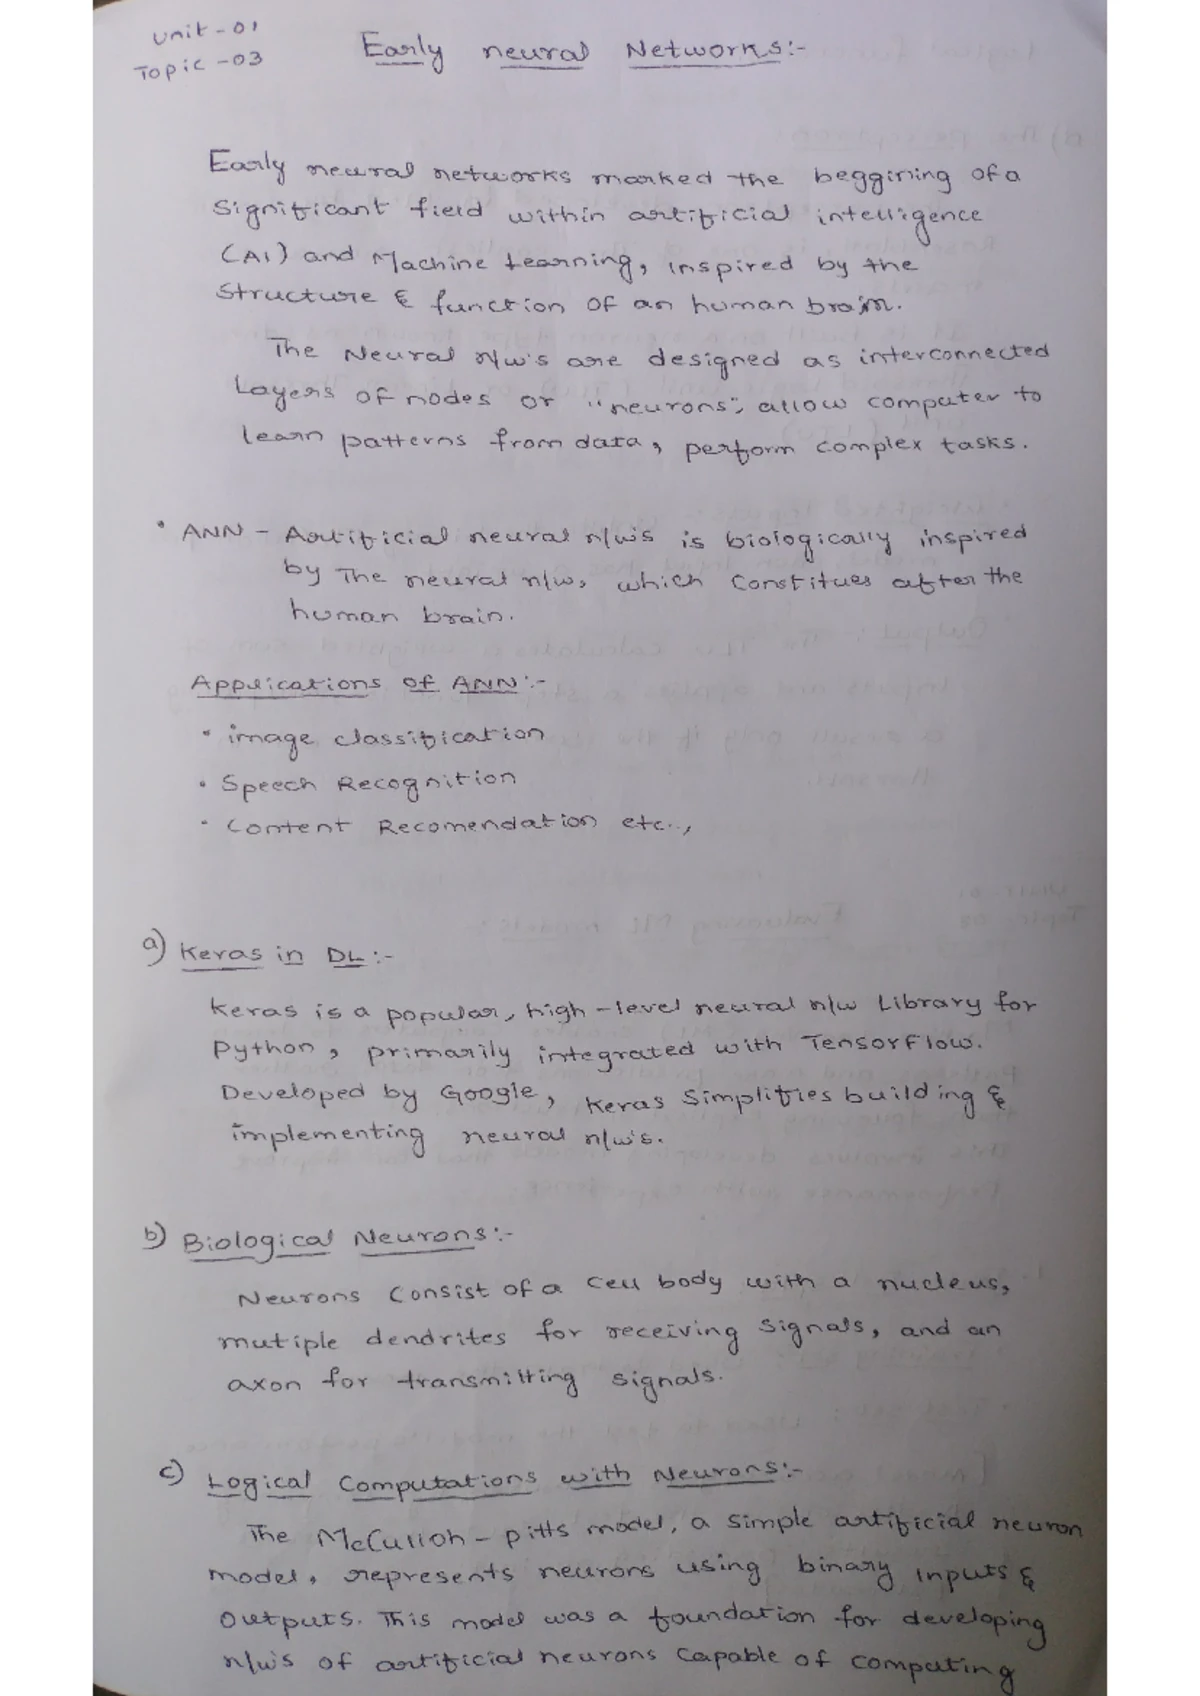 Unit-01
Topic-03
Early neural Networks:-
Early neural networks marked the beggining of a
Significant field within artificial intelligence
(AI) and Machine Learning, inspired by the
Structure & function of an human brain.
The Neural n/w's are designed as interconnected
Layers of nodes or "neurons", allow computer to
learn patterns from data, perform complex tasks.
• ANN - Artificial neural n/w's is biologically inspired
by The neural n/w, which Constitues after the
human brain.
Applications of ANN:-
• image classification
• Speech Recognition
• Content Recomendation etc..,
a) Keras in DL:-
Keras is a popular, high-level neural n/w Library for
Python, primarily integrated with TensorFlow.
Developed by Google, Keras Simplifies building &
implementing neural n/w's.
b) Biological Neurons:-
Neurons Consist of a Cell body with a nucleus,
mutiple dendrites for receiving Signals, and an
axon for transmitting signals.
c) Logical Computations with Neurons:-
The McCulloh-pitts model, a Simple artificial neuron
model, represents neurons using binary inputs &
Outputs. This model was a foundation for developing
n/w's of artificial neurons Capable of computing